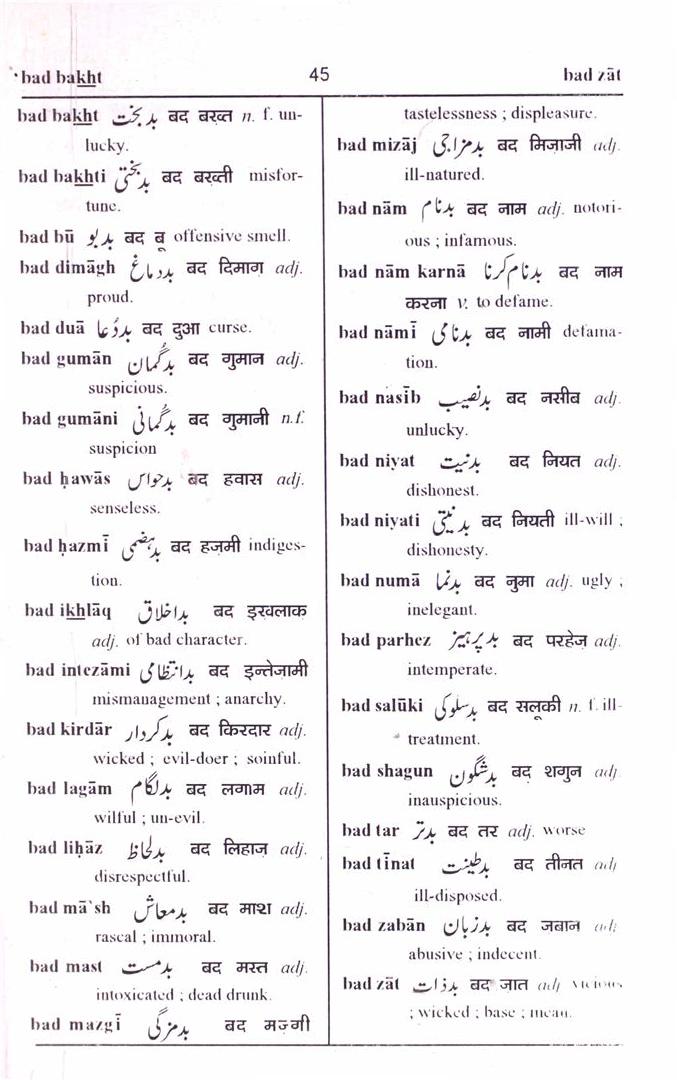 bad bakht 45 bad zāt
bad bakht بد بخت बद बख़्त n. f. un-
lucky.
bad bakhti بد بختی बद बख़्ती misfor-
tune.
bad bū بدبو बद बू offensive smell.
bad dimāgh بددماغ बद दिमाग adj.
proud.
bad duā بددُعا बद दुआ curse.
bad gumān بدگُمان बद गुमान adj.
suspicious.
bad gumāni بدگُمانی बद गुमानी n.f.
suspicion
bad ḥawās بدحواس बद हवास adj.
senseless.
bad ḥazmī بدہضمی बद हज़मी indiges-
tion.
bad ikhlāq بداخلاق बद इख़लाक
adj. of bad character.
bad intezāmi بدانتظامی बद इन्तेज़ामी
mismanagement ; anarchy.
bad kirdār بدکردار बद किरदार adj.
wicked ; evil-doer ; soinful.
bad lagām بدلگام बद लगाम adj.
wilful ; un-evil.
bad liḥāz بدلحاظ बद लिहाज़ adj.
disrespectful.
bad mā`sh بدمعاش बद माश adj.
rascal ; immoral.
bad mast بدمست बद मस्त adj.
intoxicated ; dead drunk.
bad mazgī بدمزگی बद मज़्गी
tastelessness ; displeasure.
bad mizāj بدمزاجی बद मिज़ाजी adj.
ill-natured.
bad nām بدنام बद नाम adj. notori-
ous ; infamous.
bad nām karnā بدنام کرنا बद नाम
करना v. to defame.
bad nāmī بدنامی बद नामी defama-
tion.
bad nasīb بدنصیب बद नसीब adj.
unlucky.
bad niyat بدنیت बद नियत adj.
dishonest.
bad niyati بدنیتی बद नियती ill-will ;
dishonesty.
bad numā بدنما बद नुमा adj. ugly ;
inelegant.
bad parhez بدپرہیز बद परहेज़ adj.
intemperate.
bad salūki بدسلوکی बद सलूकी n. f. ill-
treatment.
bad shagun بدشگون बद शगुन adj.
inauspicious.
bad tar بدتر बद तर adj. worse
bad tīnat بدطینت बद तीनत adj
ill-disposed.
bad zabān بدزبان बद जबान adj
abusive ; indecent.
bad zāt بدذات बद जात adj vicious
; wicked ; base ; mean.